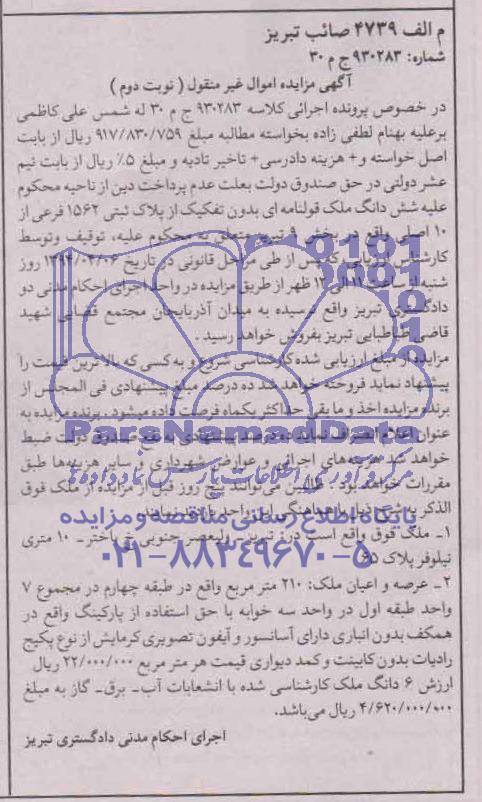 م الف ۴۷۳۹ صائب تبریز
شماره: ۹۳۰۲۸۳ ج م ۳۰
آگهی مزایده اموال غیر منقول ( نوبت دوم )
در خصوص پرونده اجرائی کلاسه ۹۳۰۲۸۳ ج م ۳۰ له شمس علی کاظمی
برعلیه بهنام لطفی زاده بخواسته مطالبه مبلغ ۹۱۷/۸۳۰/۷۵۹ ریال از بابت
اصل خواسته و+ هزینه دادرسی+ تاخیر تادیه و مبلغ ۵٪ ریال از بابت نیم
عشر دولتی در حق صندوق دولت بعلت عدم پرداخت دین از ناحیه محکوم
علیه شش دانگ ملک قولنامه ای بدون تفکیک از پلاک ثبتی ۱۵۶۲ فرعی از
۱۰ اصلی واقع در بخش ۹ تبریز متعلق به محکوم علیه، توقیف وتوسط
کارشناس ارزیابی که پس از طی مراحل قانونی در تاریخ ۱۳۹۴/۰۲/۰۶ روز
شنبه از ساعت ۱۱ الی ۱۲ ظهر از طریق مزایده در واحد اجرای احکام مدنی دو
دادگستری تبریز واقع نرسیده به میدان آذربایجان مجتمع قضایی شهید
قاضی طباطبایی تبریز بفروش خواهد رسید .
مزایده از مبلغ ارزیابی شده کارشناسی شروع و به کسی که بالاترین قیمت را
پیشنهاد نماید فروخته خواهد شد ده درصد مبلغ پیشنهادی فی المجلس از
برنده مزایده اخذ و ما بقی حداکثر یکماه فرصت داده میشود . برنده مزایده به
عنوان اعلام انصراف نماید ده درصد پیشنهادی به نفع صندوق دولت ضبط
خواهد شد هزینه‌های اجرائی و عوارض شهرداری و سایر هزینه‌ها طبق
مقررات خواهد بود . طالبین می‌توانند پنج روز قبل از مزایده از ملک فوق
الذکر به شرح ذیل با هماهنگی این واحد بازدید نمایند.
۱- ملک فوق واقع است در: تبریز- ولیعصر جنوبی خ باختر- ۱۰ متری
نیلوفر پلاک ۹۵
۲- عرصه و اعیان ملک: ۲۱۰ متر مربع واقع در طبقه چهارم در مجموع ۷
واحد طبقه اول در واحد سه خوابه با حق استفاده از پارکینگ واقع در
همکف بدون انباری دارای آسانسور و آیفون تصویری گرمایش از نوع پکیج
رادیات بدون کابینت و کمد دیواری قیمت هر متر مربع ۲۲/۰۰۰/۰۰۰ ریال
ارزش ۶ دانگ ملک کارشناسی شده با انشعابات آب- برق- گاز به مبلغ
۴/۶۲۰/۰۰۰/۰۰۰ ریال می‌باشد.
اجرای احکام مدنی دادگستری تبریز
ParsNamadData
مرکز فرآوری اطلاعات پارس نماد داده‌ها
پایگاه اطلاع رسانی مناقصه و مزایده
۰۲۱-۸۸۳۴۹۶۷۰-۵